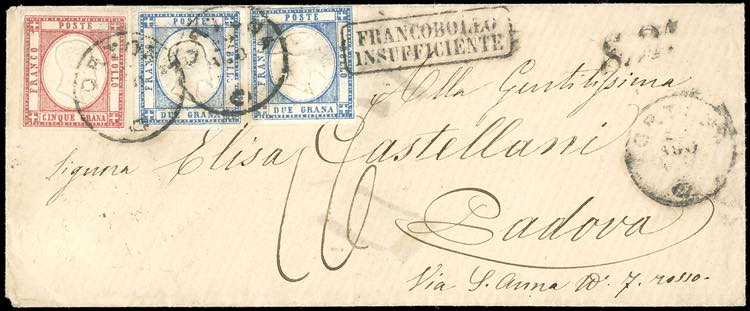 POSTE
FRANCO BOLLO
CINQUE GRANA
POSTE
FRANCO
DUE GRANA
POSTE
FRANCO BOLLO
DUE GRANA
FRANCOBOLLO
INSUFFICIENTE
Alla Gentilissima
Signora Elisa Castellani
Padova
Via S. Anna N° 7. rosso.